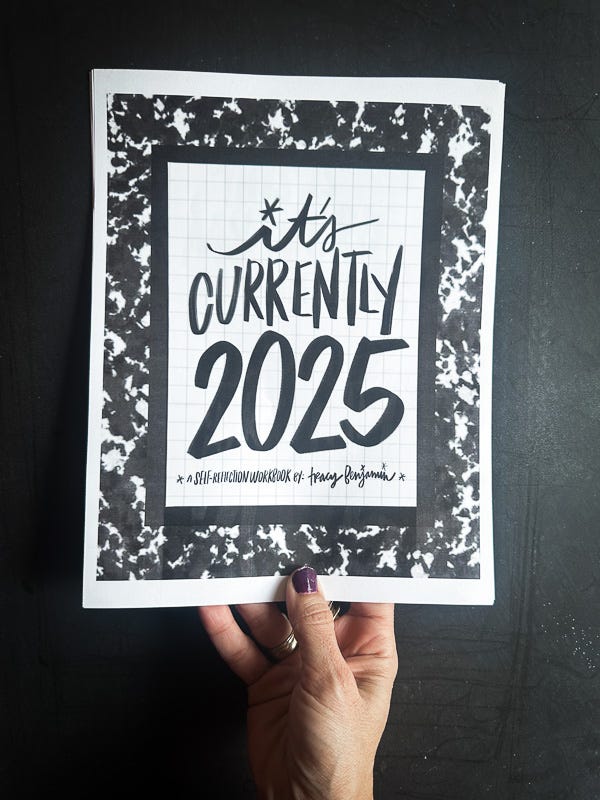 it's
CURRENTLY
2025
* A SELF-REFLECTION WORKBOOK BY: tracy Benjamin *